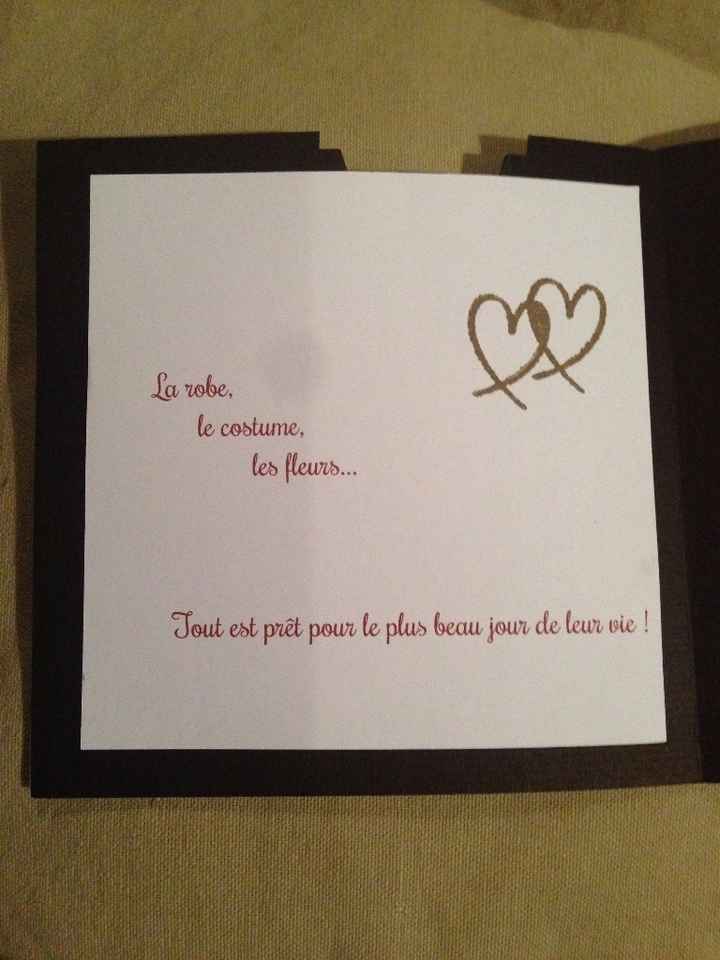 La robe,
le costume,
les fleurs...
Tout est prêt pour le plus beau jour de leur vie !